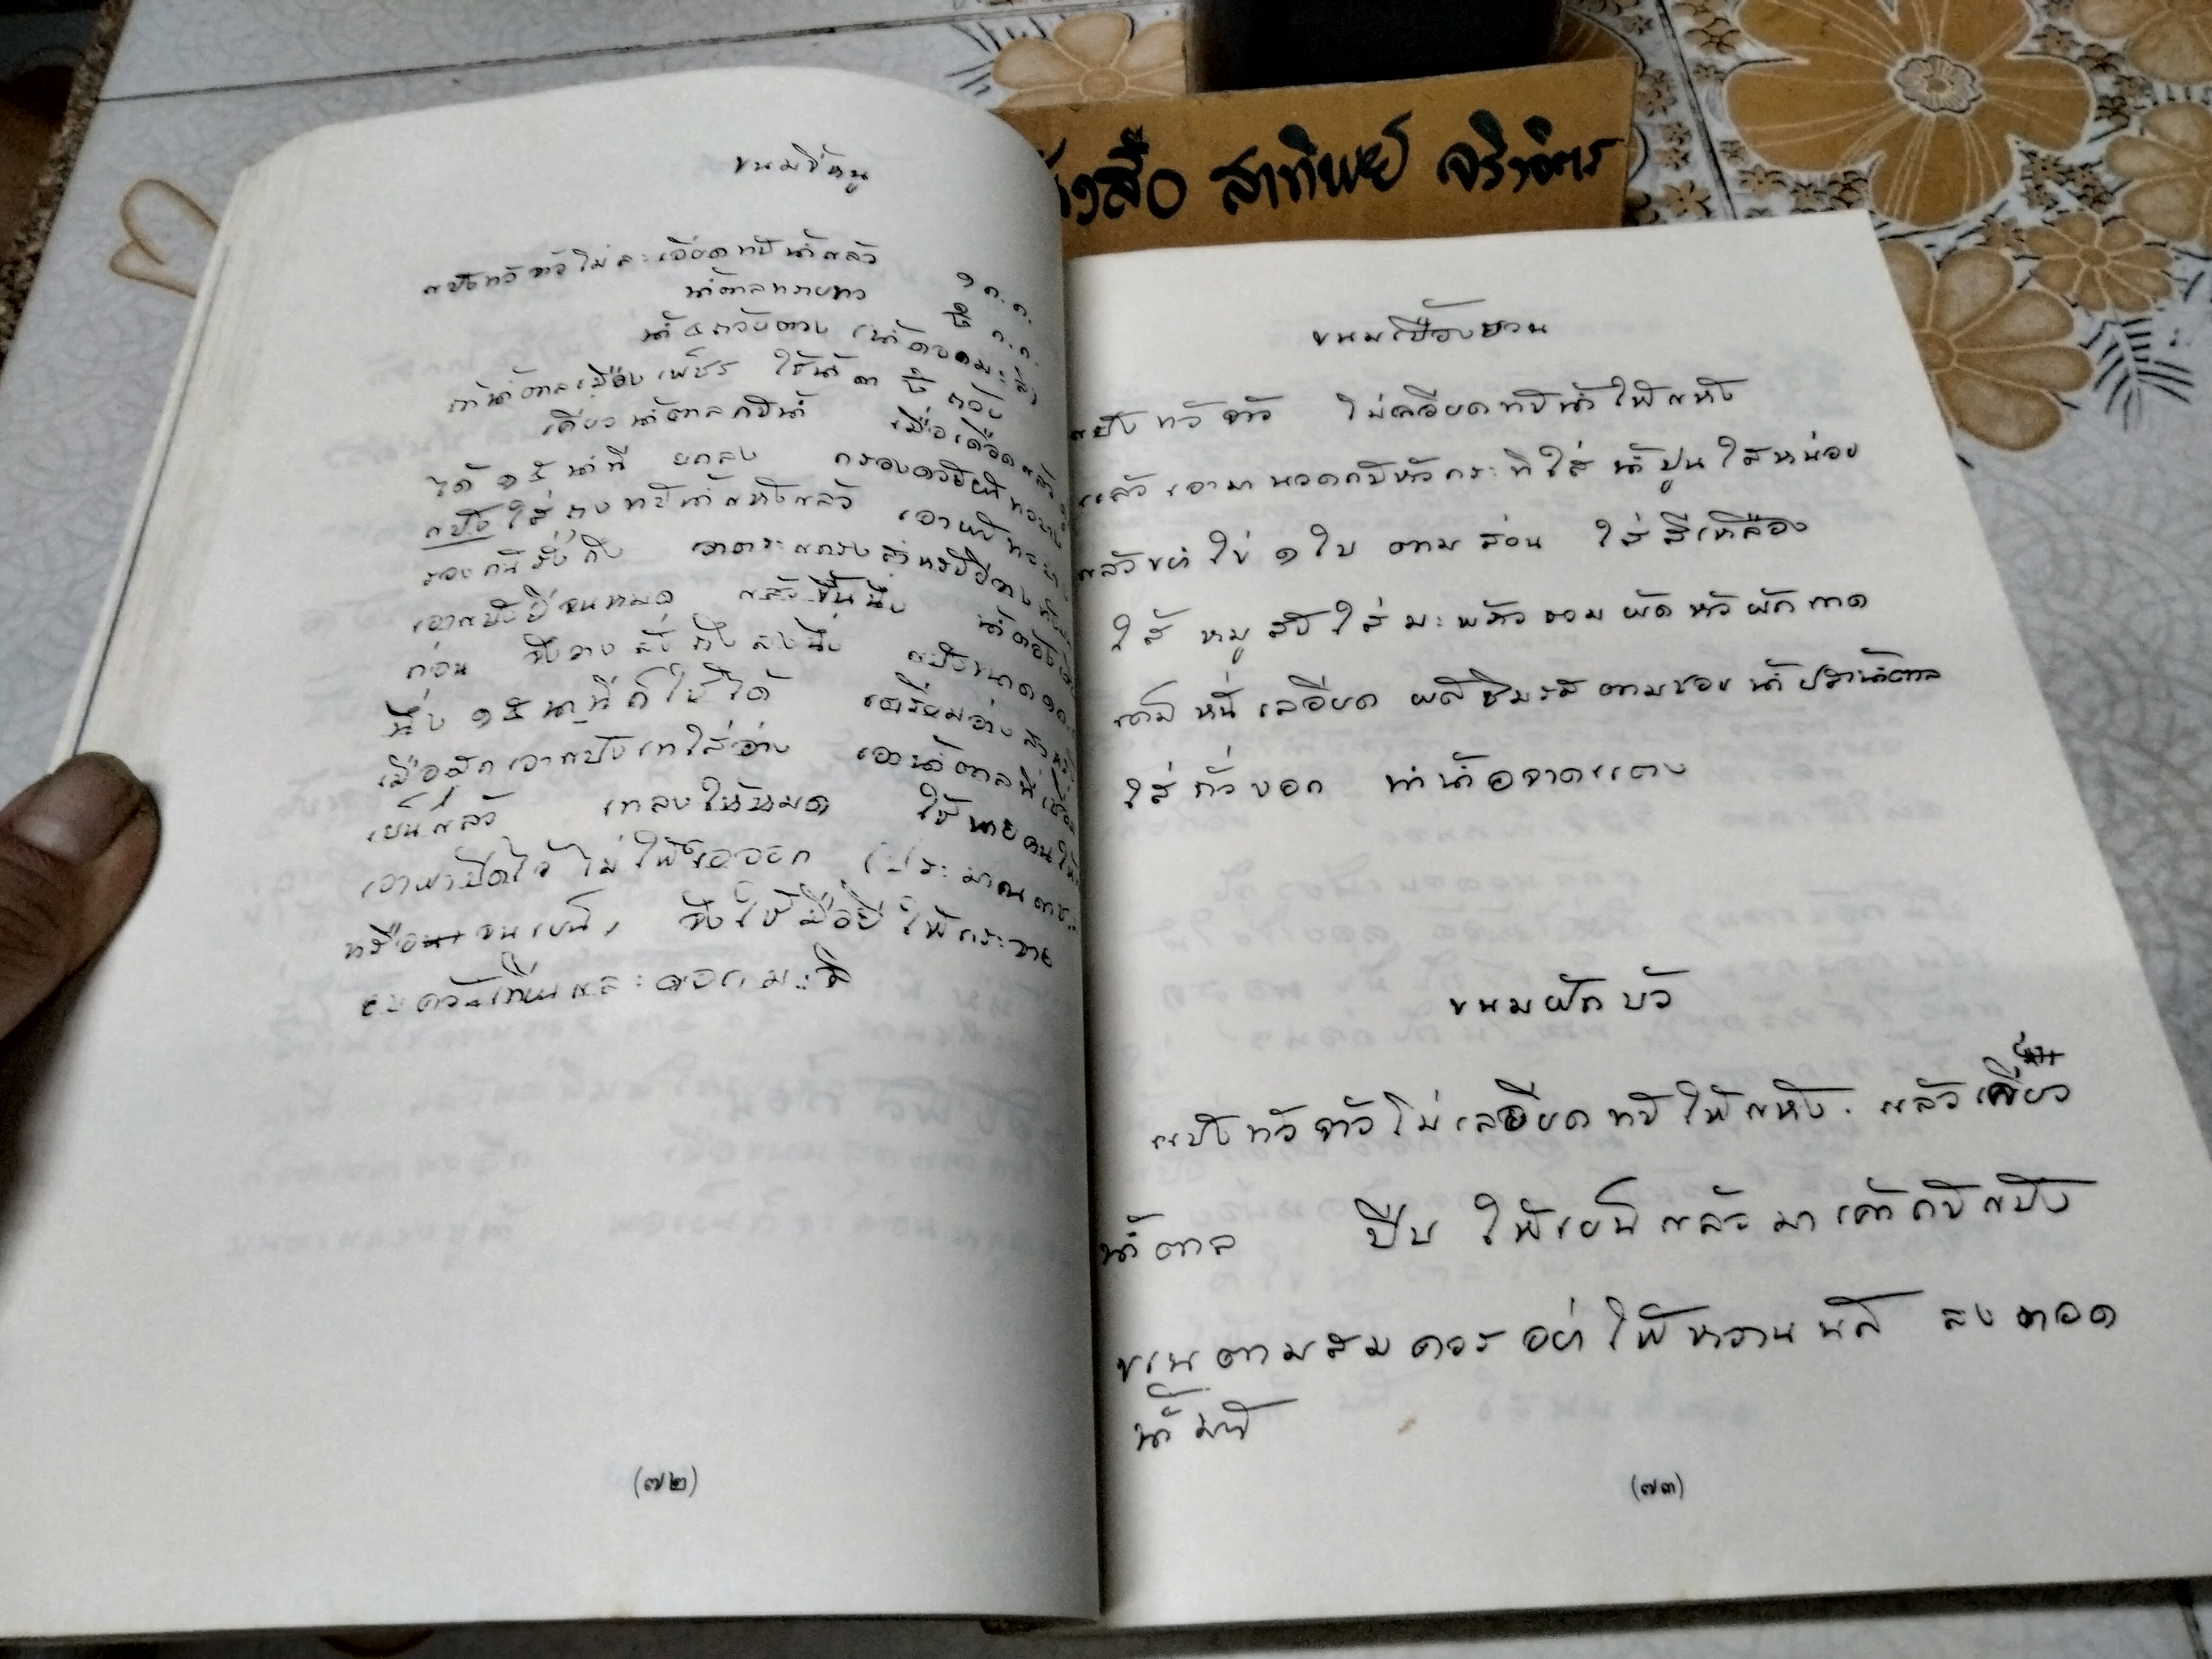 ขนมขี้หนู
แป้งข้าวจ้าวโม่ละเอียดทับน้ำแล้ว ๑ ก.ก.
น้ำตาลทรายขาว ๑ ก.ก.
น้ำ ๔ ถ้วยตวง (น้ำดอกมะลิ)
ถ้าน้ำตาลเมืองเพ็ชร ใช้น้ำ ๓ ถ้วย
เคี่ยวน้ำตาลกับน้ำ เมื่อเดือดแล้ว
ได้ ๑๕ นาที ยกลง กรองด้วยผ้าขาวบาง
แป้งใส่ถุงทับน้ำแห้งแล้ว เอาผ้าขาวบาง
รองก้นรังถึง เอาตะแกรงสำหรับวาง
เอาแป้งยีจนหมด แล้วขึ้นนึ่ง น้ำต้องเดือด
ก่อน จึงวางลังถึงลงนึ่ง แป้งขนาด ๑ ก.ก.
นึ่ง ๑๕ นาทีก็ใช้ได้ เตรียมอ่างสำหรับ
เมื่อสุกเอาแป้งเทใส่อ่าง เอาน้ำตาลที่เชื่อม
เย็นแล้ว เทลงให้หมด ใช้พายคนให้
เอาฝาปิดไว้ไม่ให้ไอออก (ประมาณ
หรือจนเย็น) จึงใช้มือยี ให้กระจาย
อบควันเทียนและดอกมะลิ
(๗๒)
หนังสือ สาทิพย์ จริงจิตร
ขนมเบื้องญวน
แป้งข้าวจ้าว โม่เลอียดทับน้ำให้แห้ง
แล้วเอามานวดกับหัวกะทิใส่น้ำปูนใสหน่อย
แล้วขยำไข่ ๑ ใบ ตามส่วน ใส่สีเหลือง
ไส้ หมูสับใส่มะพร้าวรวมผัดหัวผักกาด
เค็มหั่นเลอียด ผัดชิมรสตามชอบ น้ำปลาน้ำตาล
ใส่ถั่วงอก ทำน้ำอาจาดแตง
ขนมฝักบัว
แป้งข้าวจ้าวโม่เลอียดทับให้แห้ง. แล้วเคี่ยว
น้ำตาล ปีบ ให้เย็นแล้วมาเคล้ากับแป้ง
ขเนตามสมควรอย่าให้หวานนัก ลงทอด
น้ำมัน
(๗๓)